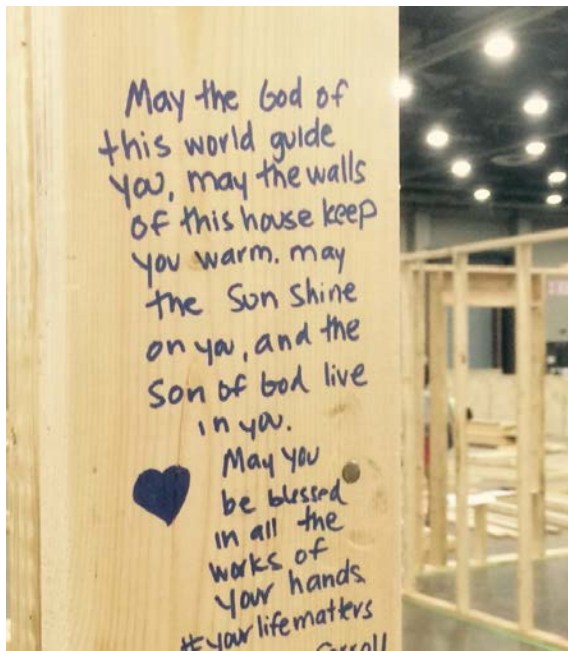 May the God of
this world guide
you, may the walls
of this house keep
you warm. may
the Sun Shine
on you, and the
Son of God live
in you.
May you
be blessed
in all the
works of
your hands
#yourlifematters